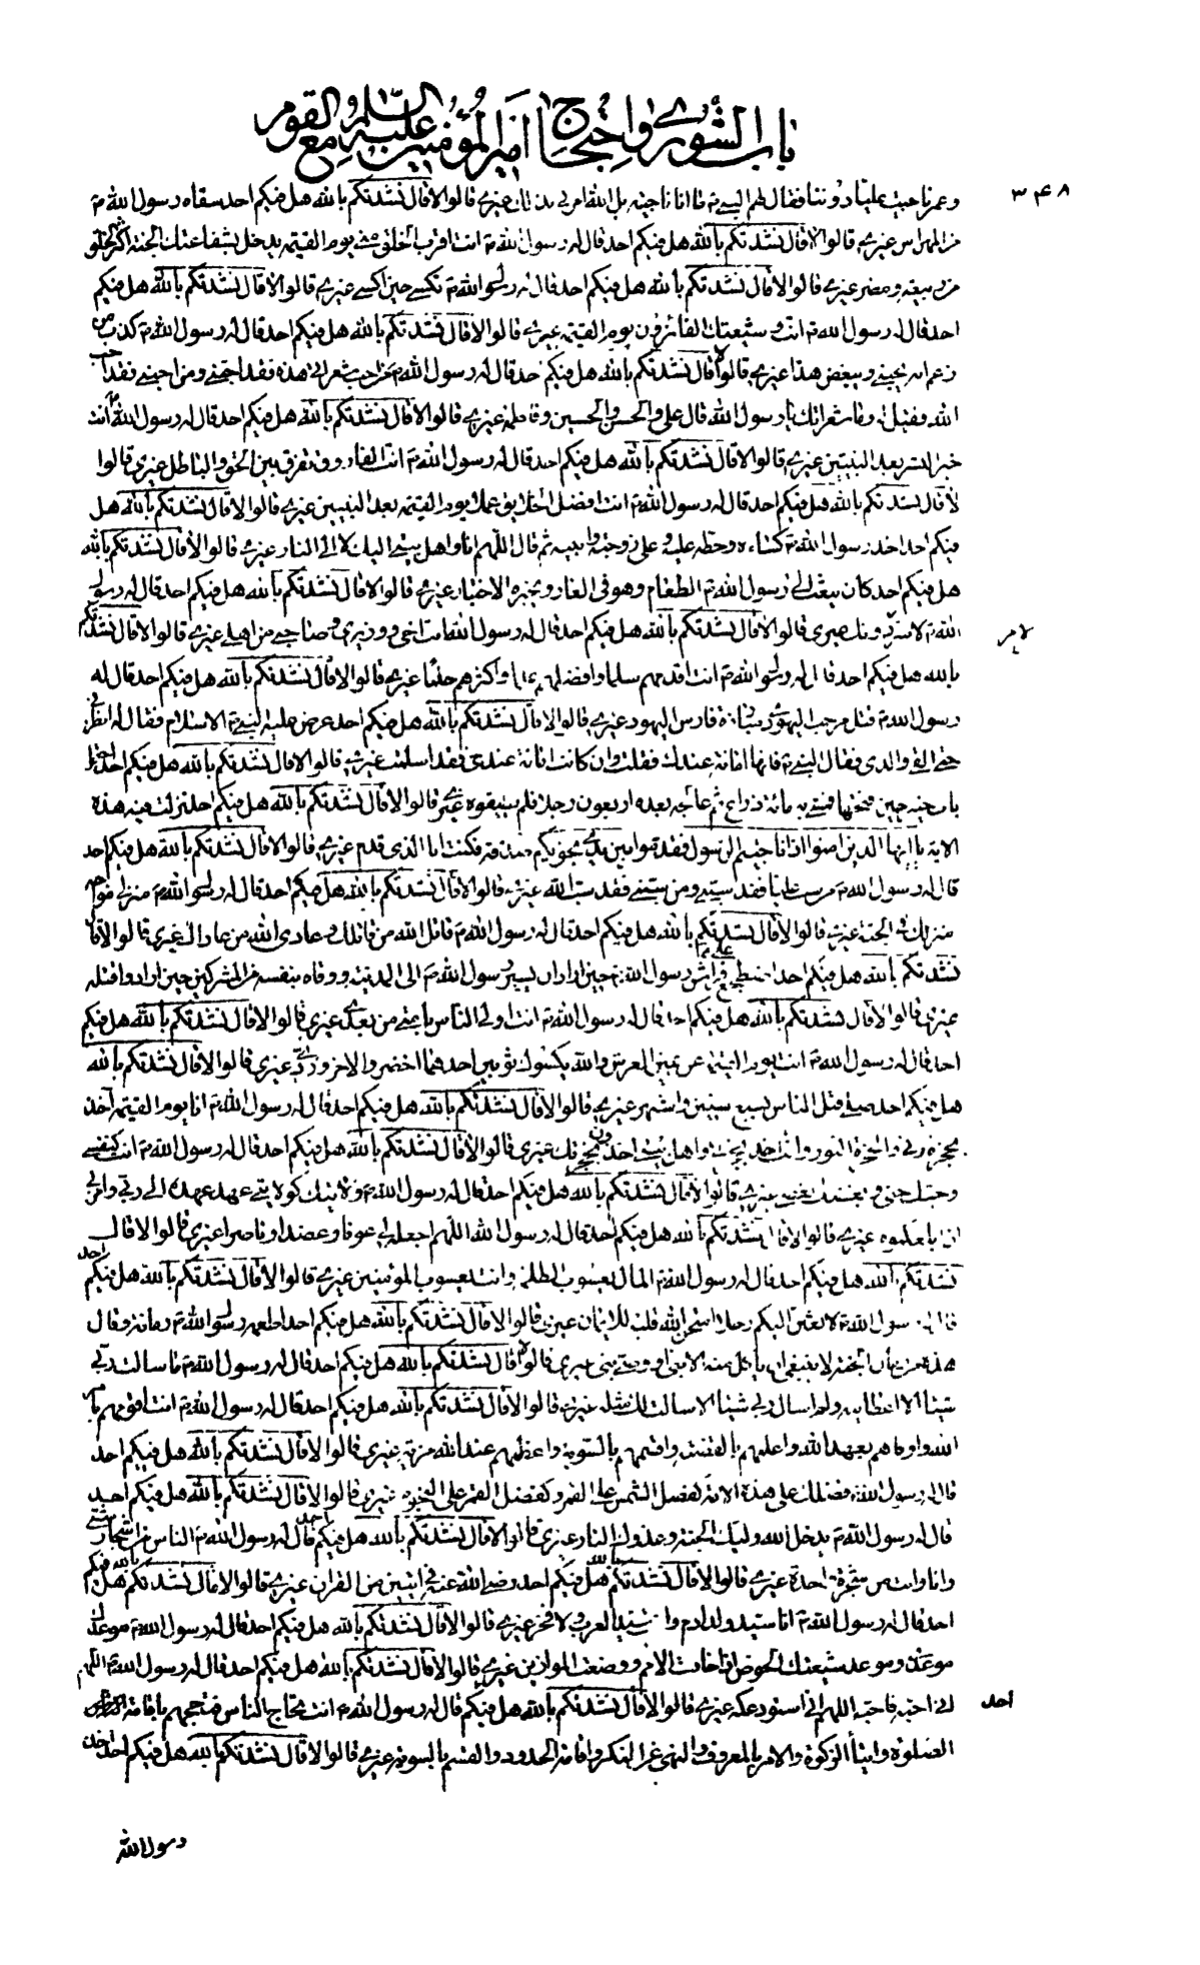 باب الشورى واحتجاج امير المؤمنين عليه السلم مع القوم
٣۴٨
وعمر ناجيت عليا دوننا فقال لهم النبي ص ما انا ناجيته بل الله امرني بذلك غيري قالوا لا قال نشدتكم بالله هل فيكم احد سقاه رسول الله ص
من المهراس غيري قالوا لا قال نشدتكم بالله هل فيكم احد قال له رسول الله ص انت اقرب الخلق مني يوم القيمة يدخل بشفاعتك الجنة اكثر الخلق
من ربيعة ومضر غيري قالوا لا قال نشدتكم بالله هل فيكم احد قال له رسول الله ص تكسى حين اكسى غيري قالوا لا قال نشدتكم بالله هل فيكم
احد قال له رسول الله ص انت وشيعتك الفائزون يوم القيمة غيري قالوا لا قال نشدتكم بالله هل فيكم احد قال له رسول الله ص كذب من
زعم انه يحبني ويبغض هذا غيري قالوا لا قال نشدتكم بالله هل فيكم احد قال له رسول الله ص من احب شعراتي هذه فقد احبني ومن احبني فقد احب
الله فقيل وما شعراتك يا رسول الله قال علي والحسن والحسين وفاطمة غيري قالوا لا قال نشدتكم بالله هل فيكم احد قال له رسول الله ص انت
خير البشر بعد النبيين غيري قالوا لا قال نشدتكم بالله هل فيكم احد قال له رسول الله ص انت الفاروق تفرق بين الحق والباطل غيري قالوا
لا قال نشدتكم بالله هل فيكم احد قال له رسول الله ص انت افضل الخلايق عملا يوم القيمة بعد النبيين غيري قالوا لا قال نشدتكم بالله هل
فيكم احد اخذ رسول الله ص كساءه وحطه عليه وعلى زوجته وابنيه ثم قال اللهم انا واهل بيتي اليك لا الى النار غيري قالوا لا قال نشدتكم بالله
هل فيكم احد كان يبعث الى رسول الله ص الطعام وهو في الغار ويخبره الاخبار غيري قالوا لا قال نشدتكم بالله هل فيكم احد قال له رسول
الله ص غيري قالوا لا قال نشدتكم بالله هل فيكم احد قال له رسول الله انت اخي ووزيري وصاحبي من اهلي غيري قالوا لا قال نشدتكم
لا مر
بالله هل فيكم احد قال له رسول الله ص انت اقدمهم سلما وافضلهم علما واكثرهم حلما غيري قالوا لا قال نشدتكم بالله هل فيكم احد قال له
رسول الله ص قتل مرحب اليهودي مبارزة فارس اليهود غيري قالوا لا قال نشدتكم بالله هل فيكم احد عرض عليه النبي ص الاسلام فقال له انظرني
حتى القى والدي فقال النبي ص فانها امانة عندك فقلت وان كانت امانة عندي فقد اسلمت غيري قالوا لا قال نشدتكم بالله هل فيكم احد احتمل
باب خيبر حين فتحها فمشى به مائة ذراع ثم عالجه بعده اربعون رجلا فلم يطيقوه غيري قالوا لا قال نشدتكم بالله هل فيكم احد نزلت فيه هذه
الاية يا ايها الذين امنوا اذا ناجيتم الرسول فقدموا بين يدي نجويكم صدقة فكنت انا الذي قدم غيري قالوا لا قال نشدتكم بالله هل فيكم احد
قال له رسول الله ص من سب عليا فقد سبني ومن سبني فقد سب الله غيري قالوا لا قال نشدتكم بالله هل فيكم احد قال له رسول الله ص منزلي مواجه
منزلك في الجنة غيري قالوا لا قال نشدتكم بالله هل فيكم احد قال له رسول الله ص قاتل الله من قاتلك وعادى الله من عاداك غيري قالوا لا قال
نشدتكم بالله هل فيكم احد اضطجع على فراش رسول الله ص حين اراد ان يسير رسول الله ص الى المدينة ووقاه بنفسه من المشركين حين ارادوا قتله
غيري قالوا لا قال نشدتكم بالله هل فيكم احد قال له رسول الله ص انت اولى الناس بامتي من بعدي غيري قالوا لا قال نشدتكم بالله هل فيكم
احد قال له رسول الله ص انت يوم القيمة عن يمين العرش والله يكسوك ثوبين احدهما اخضر والاخر وردي غيري قالوا لا قال نشدتكم بالله
هل فيكم احد صلى قبل الناس بسبع سنين واشهر غيري قالوا لا قال نشدتكم بالله هل فيكم احد قال له رسول الله ص انا يوم القيمة آخذ
بحجزة ربي والحجزة النور وانت اخذ بحجزتي واهل بيتي اخذون بحجزتك غيري قالوا لا قال نشدتكم بالله هل فيكم احد قال له رسول الله ص انت كنفسي
وحبك حبي وبغضك بغضي غيري قالوا لا قال نشدتكم بالله هل فيكم احد قال له رسول الله ص ولايتك كولايتي عهد عهده الي ربي وامرني
ان ابلغكموه غيري قالوا لا قال نشدتكم بالله هل فيكم احد قال له رسول الله اللهم اجعله لي عونا وعضدا وناصرا غيري قالوا لا قال
نشدتكم بالله هل فيكم احد قال له رسول الله ص المال يعسوب الظلمة وانت يعسوب المؤمنين غيري قالوا لا قال نشدتكم بالله هل فيكم احد
قال له رسول الله ص لابعثن اليكم رجلا امتحن الله قلبه للايمان غيري قالوا لا قال نشدتكم بالله هل فيكم احد اطعمه رسول الله ص رمانة وقال
هذه من رمان الجنة لا ينبغي ان ياكل منه الا نبي او وصي نبي غيري قالوا لا قال نشدتكم بالله هل فيكم احد قال له رسول الله ص ما سالت ربي
شيئا الا اعطانيه ولم اسال ربي شيئا الا سالت لك مثله غيري قالوا لا قال نشدتكم بالله هل فيكم احد قال له رسول الله ص انت اقومهم بامر
الله واوفاهم بعهد الله واعلمهم بالقضية واقسمهم بالسوية واعظمهم عند الله مزية غيري قالوا لا قال نشدتكم بالله هل فيكم احد
قال له رسول الله ص فضلك على هذه الامة كفضل الشمس على القمر وكفضل القمر على النجوم غيري قالوا لا قال نشدتكم بالله هل فيكم احد
قال له رسول الله ص يدخل الله وليك الجنة وعدوك النار غيري قالوا لا قال نشدتكم بالله هل فيكم احد قال له رسول الله ص الناس من اشجار شتى
وانا وانت من شجرة واحدة غيري قالوا لا قال نشدتكم بالله هل فيكم احد رضي الله عنه في ايتين من القران غيري قالوا لا قال نشدتكم بالله هل فيكم
احد قال له رسول الله ص انا سيد ولد ادم وانت سيد العرب ولا فخر غيري قالوا لا قال نشدتكم بالله هل فيكم احد قال له رسول الله ص موعدك
موعدي وموعد شيعتك الحوض اذا خافت الامم ووضعت الموازين غيري قالوا لا قال نشدتكم بالله هل فيكم احد قال له رسول الله ص اللهم
اني احبه فاحبه اللهم اني استودعكه غيري قالوا لا قال نشدتكم بالله هل فيكم قال له رسول الله ص انت تحاج الناس فتحجهم باقامة
احد
الصلوة وايتاء الزكوة والامر بالمعروف والنهي عن المنكر واقامة الحدود والقسم بالسوية غيري قالوا لا قال نشدتكم بالله هل فيكم احد اخذ
رسول الله